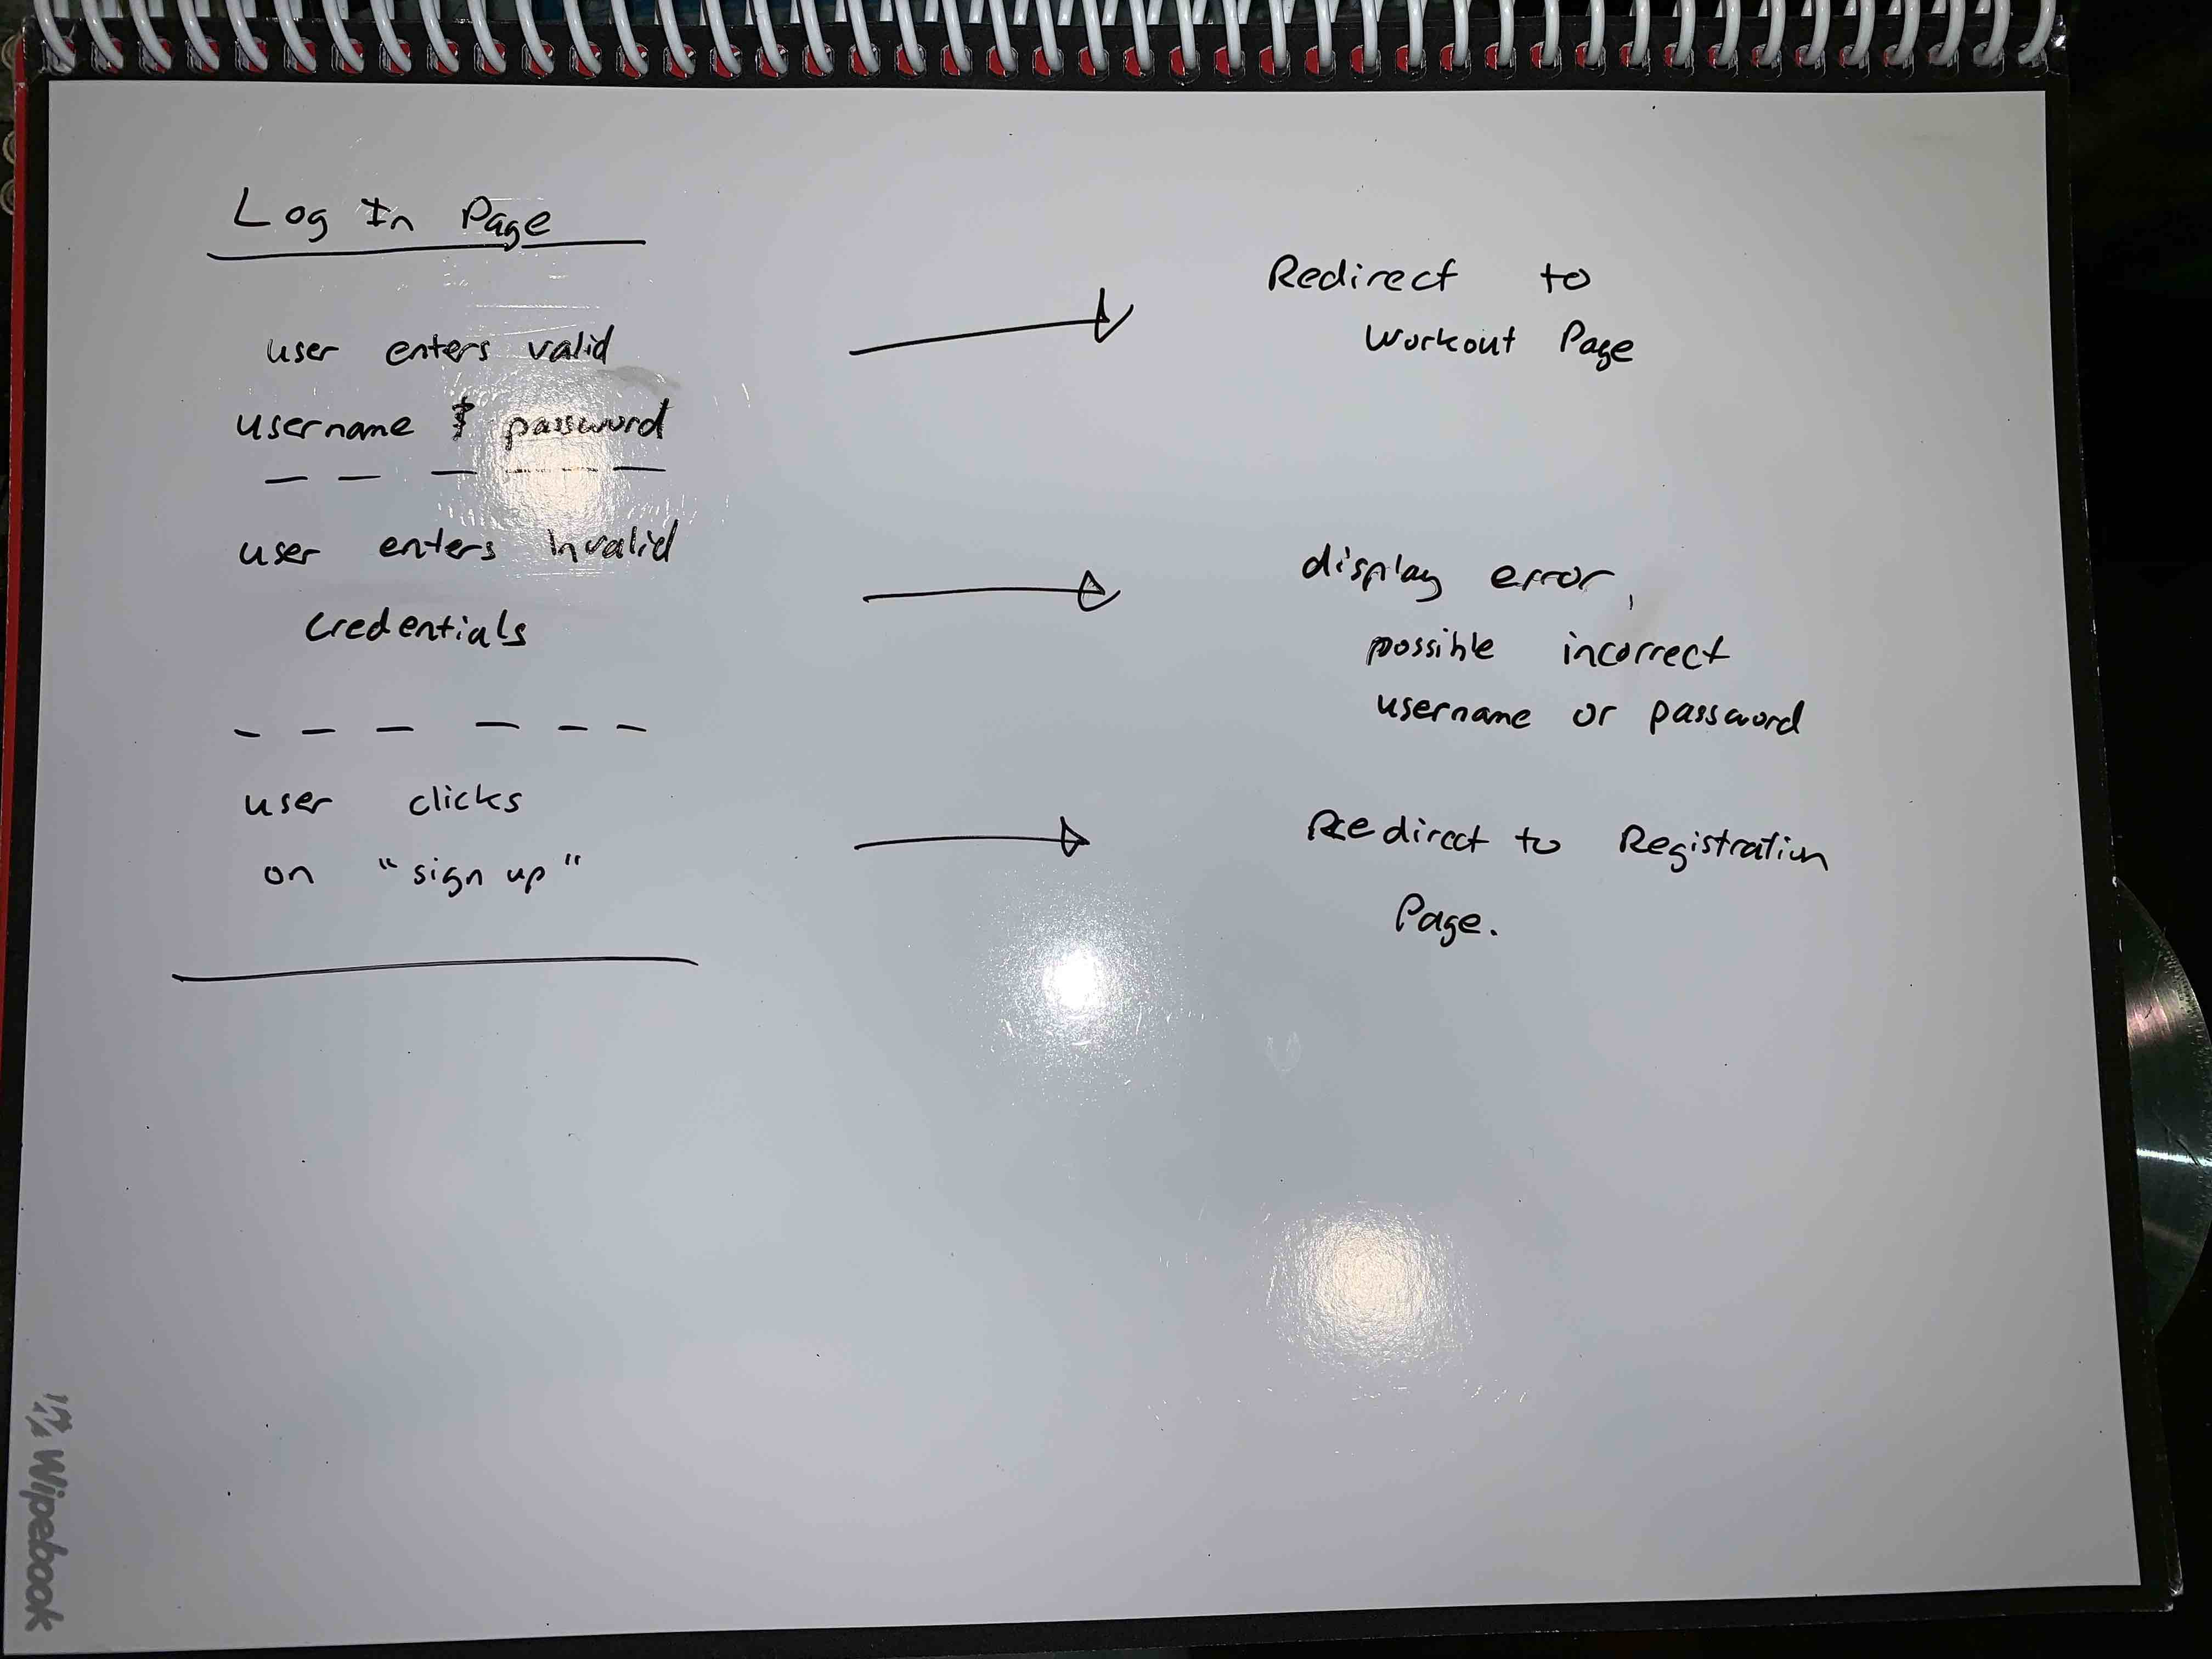 Log In Page
user enters valid
username & password
Redirect to
Workout Page
user enters invalid
credentials
display error,
possible incorrect
username or password
user clicks
on "sign up"
Redirect to Registration
Page.
Wipebook